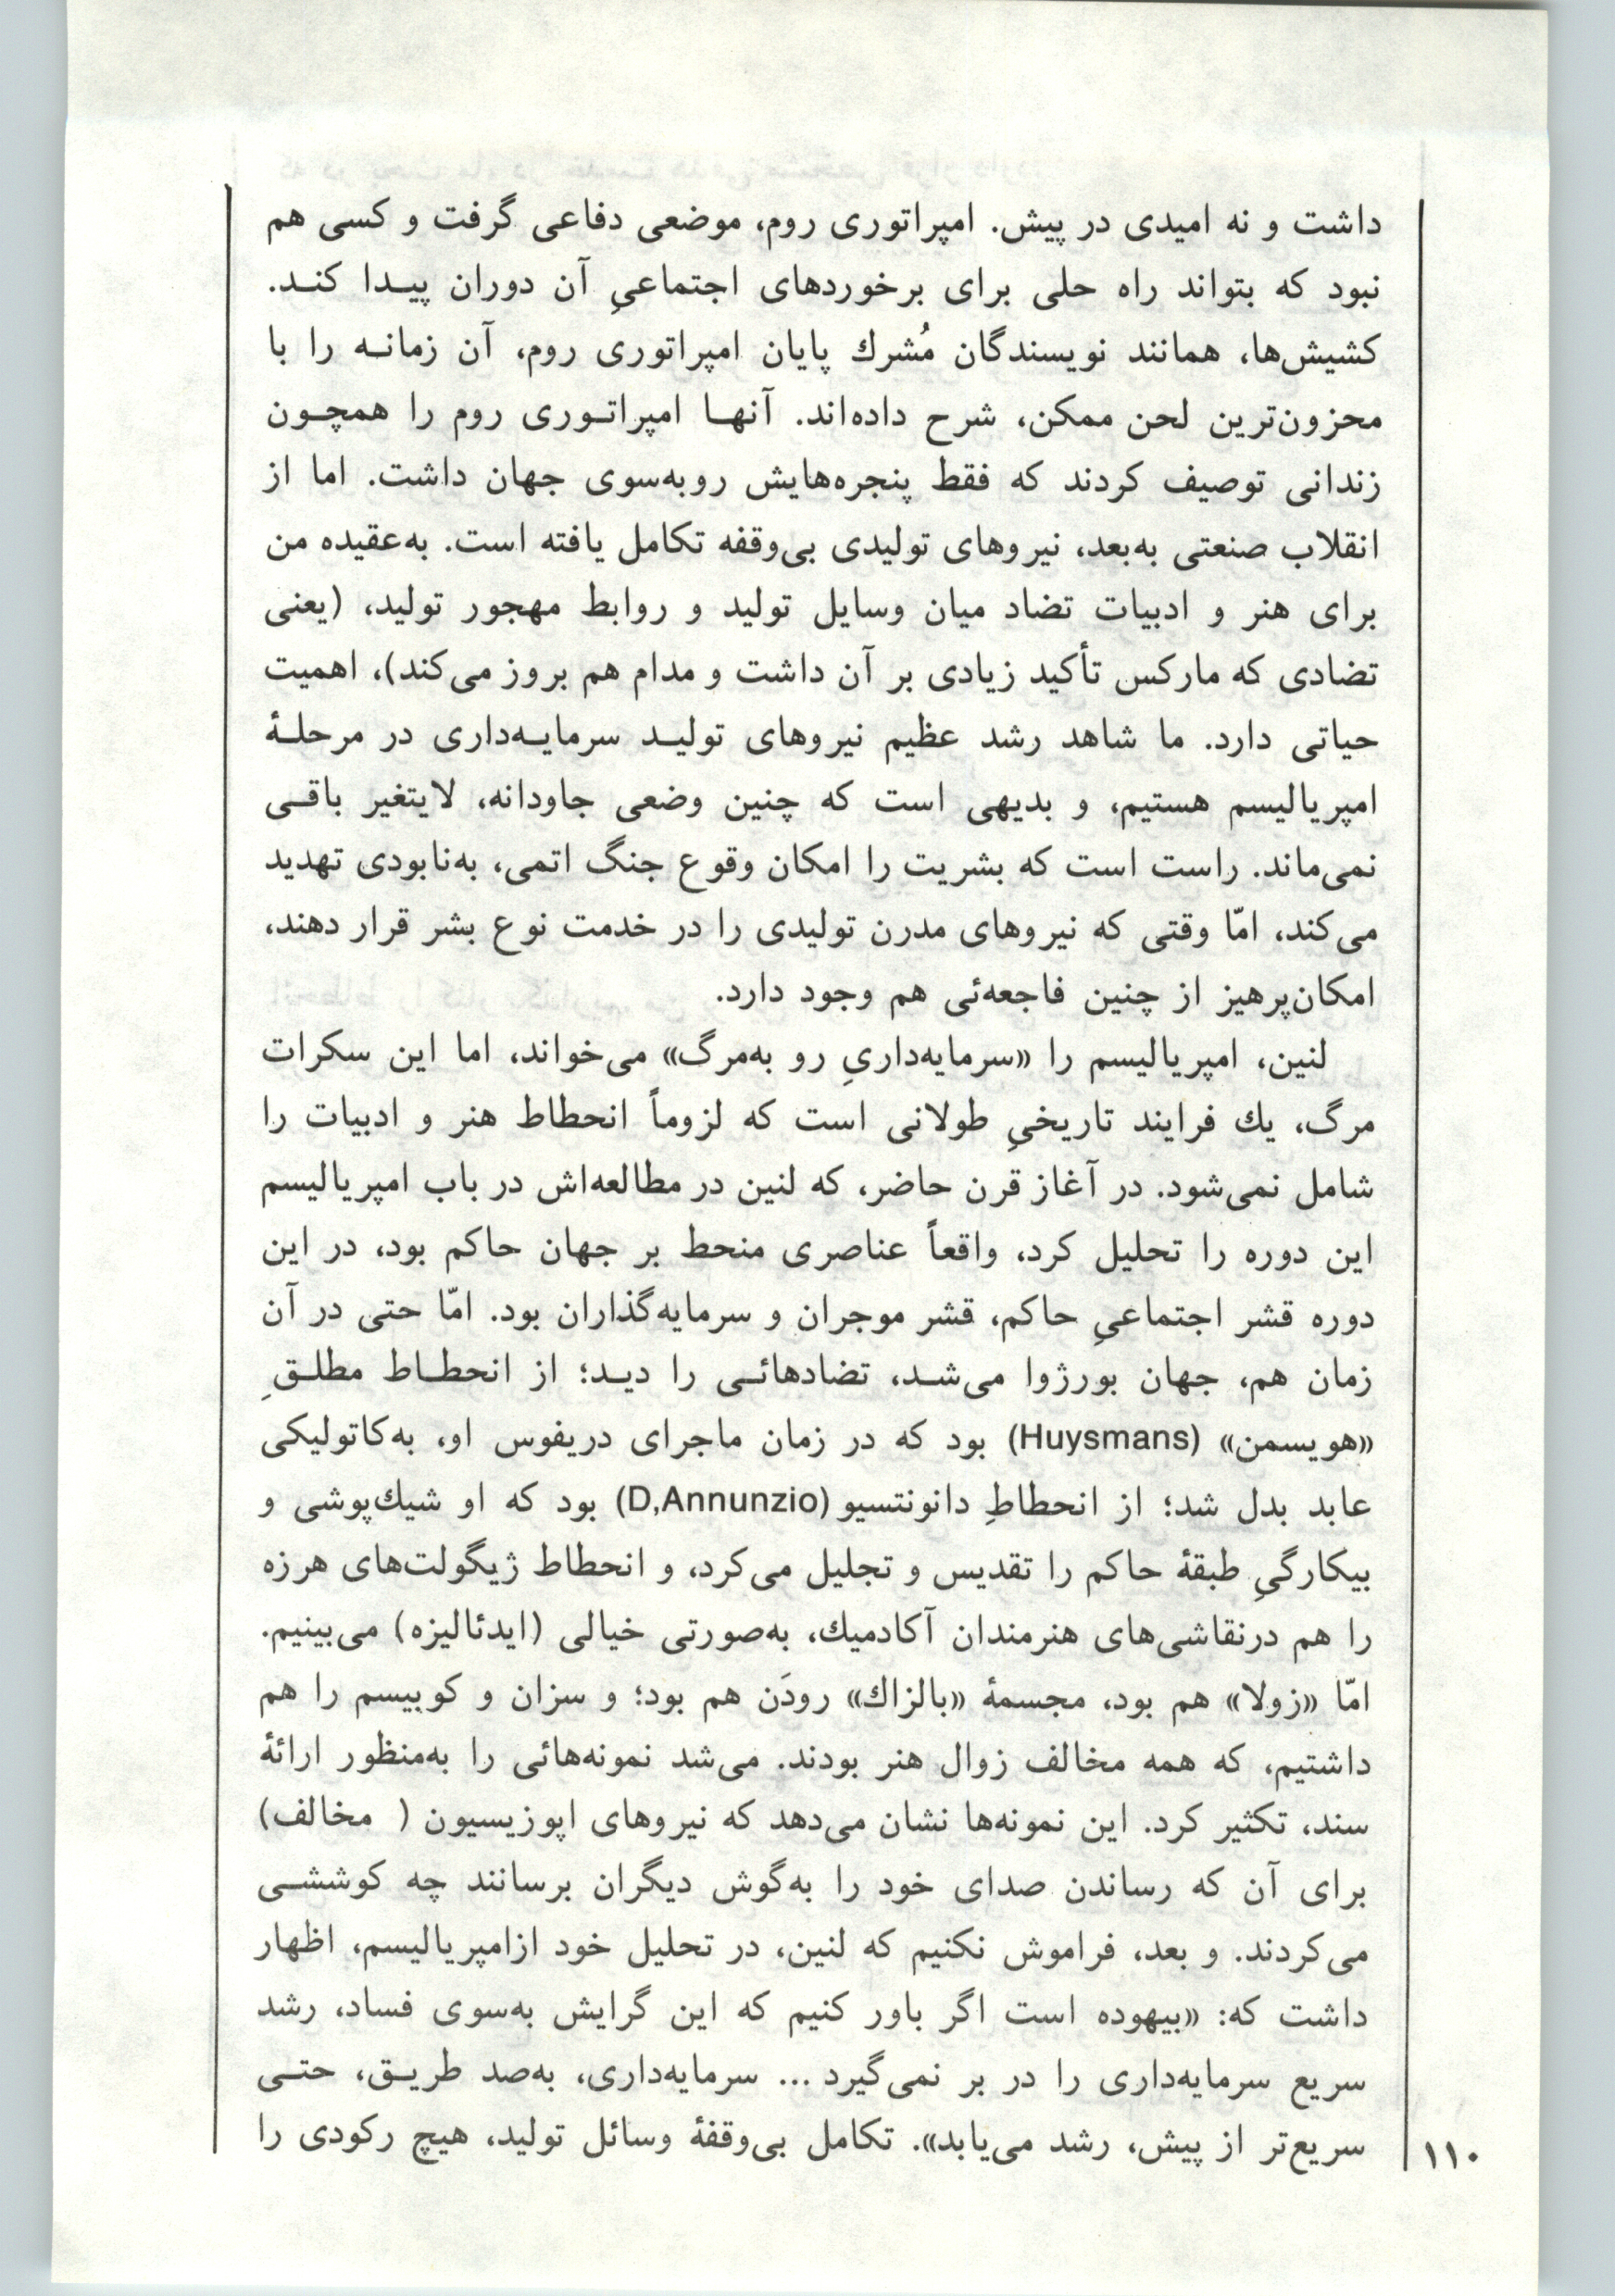 داشت و نه امیدی در پیش. امپراتوری روم، موضعی دفاعی گرفت و کسی هم
نبود که بتواند راه حلی برای برخوردهای اجتماعیِ آن دوران پیـدا کنـد.
کشیش‌ها، همانند نویسندگان مُشرك پایان امپراتوری روم، آن زمانـه را با
محزون‌ترین لحن ممکن، شرح داده‌اند. آنهـا امپراتـوری روم را همچـون
زندانی توصیف کردند که فقط پنجره‌هایش روبه‌سوی جهان داشت. اما از
انقلاب صنعتی به‌بعد، نیروهای تولیدی بی‌وقفه تکامل یافته است. به‌عقیده من
برای هنر و ادبیات تضاد میان وسایل تولید و روابط مهجور تولید، (یعنی
تضادی که مارکس تأکید زیادی بر آن داشت و مدام هم بروز می‌کند)، اهمیت
حیاتی دارد. ما شاهد رشد عظیم نیروهای تولیـد سرمایـه‌داری در مرحلـۀ
امپریالیسم هستیم، و بدیهی است که چنین وضعی جاودانه، لایتغیر باقـی
نمی‌ماند. راست است که بشریت را امکان وقوع جنگ اتمی، به‌نابودی تهدید
می‌کند، امّا وقتی که نیروهای مدرن تولیدی را در خدمت نوع بشر قرار دهند،
امکان‌پرهیز از چنین فاجعه‌ئی هم وجود دارد.
لنین، امپریالیسم را «سرمایه‌داریِ رو به‌مرگ» می‌خواند، اما این سکرات
مرگ، یك فرایند تاریخیِ طولانی است که لزوماً انحطاط هنر و ادبیات را
شامل نمی‌شود. در آغاز قرن حاضر، که لنین در مطالعه‌اش در باب امپریالیسم
این دوره را تحلیل کرد، واقعاً عناصری منحط بر جهان حاکم بود، در این
دوره قشر اجتماعیِ حاکم، قشر موجران و سرمایه‌گذاران بود. امّا حتی در آن
زمان هم، جهان بورژوا می‌شـد، تضادهائـی را دیـد؛ از انحطـاط مطلـقِ
«هویسمن» (Huysmans) بود که در زمان ماجرای دریفوس او، به‌کاتولیکی
عابد بدل شد؛ از انحطاطِ دانونتسیو (D,Annunzio) بود که او شیك‌پوشی و
بیکارگیِ طبقۀ حاکم را تقدیس و تجلیل می‌کرد، و انحطاط ژیگولت‌های هرزه
را هم درنقاشی‌های هنرمندان آکادمیك، به‌صورتی خیالی (ایدئالیزه) می‌بینیم.
امّا «زولا» هم بود، مجسمۀ «بالزاك» رودَن هم بود؛ و سزان و کوبیسم را هم
داشتیم، که همه مخالف زوال هنر بودند. می‌شد نمونه‌هائی را به‌منظور ارائۀ
سند، تکثیر کرد. این نمونه‌ها نشان می‌دهد که نیروهای اپوزیسیون ( مخالف)
برای آن که رساندن صدای خود را به‌گوش دیگران برسانند چه کوششـی
می‌کردند. و بعد، فراموش نکنیم که لنین، در تحلیل خود ازامپریالیسم، اظهار
داشت که: «بیهوده است اگر باور کنیم که این گرایش به‌سوی فساد، رشد
سریع سرمایه‌داری را در بر نمی‌گیرد ... سرمایه‌داری، به‌صد طریـق، حتـی
سریع‌تر از پیش، رشد می‌یابد». تکامل بی‌وقفۀ وسائل تولید، هیچ رکودی را
۱۱۰